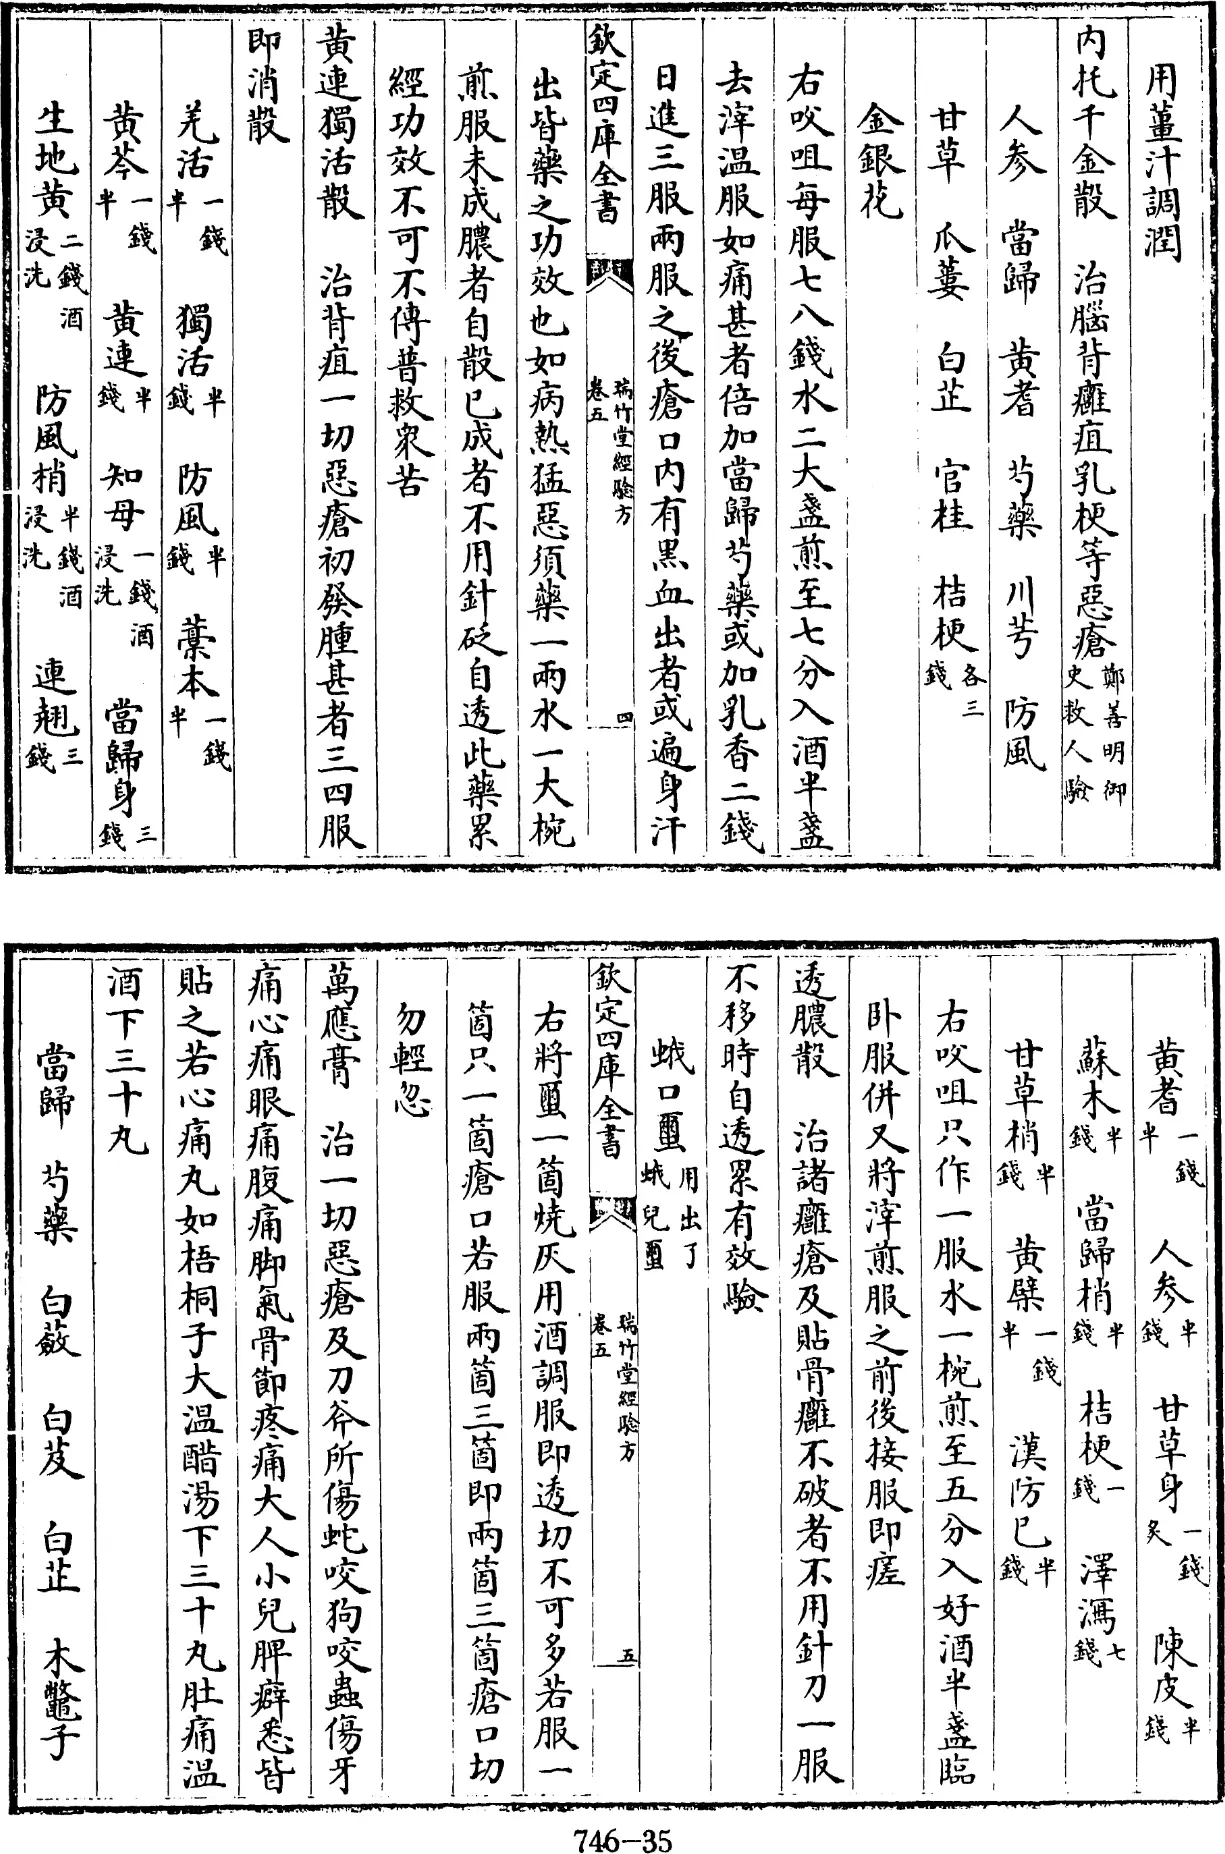 用薑汁調潤
内托千金散　治腦背癰疽乳梗等惡瘡鄭善明御史救人驗
人參　當歸　黄耆　芍藥　川芎　防風
甘草　爪蔞　白芷　官桂　桔梗各三錢
金銀花
右㕮咀每服七八錢水二大盞煎至七分入酒半盞
去滓温服如痛甚者倍加當歸芍藥或加乳香二錢
日進三服兩服之後瘡口内有黒血出者或遍身汗
欽定四庫全書　瑞竹堂經驗方　卷五　四
出皆藥之功效也如病熱猛惡須藥一兩水一大椀
煎服未成膿者自散已成者不用針砭自透此藥累
經功效不可不傳普救衆苦
黄連獨活散　治背疽一切惡瘡初發腫甚者三四服
即消散
羌活一錢半　獨活半錢　防風半錢　藁本一錢半
黄芩一錢半　黄連半錢　知母一錢酒浸洗　當歸身三錢
生地黄二錢酒浸洗　防風梢半錢酒浸洗　連翹三錢
黄耆一錢半　人參半錢　甘草身一錢炙　陳皮半錢
蘇木半錢　當歸梢半錢　桔梗一錢　澤瀉七錢
甘草梢半錢　黄蘗一錢半　漢防已半錢
右㕮咀只作一服水一椀煎至五分入好酒半盞臨
卧服併又將滓煎服之前後接服即瘥
透膿散　治諸癰瘡及貼骨癰不破者不用針刀一服
不移時自透累有效驗
蛾口蠒用出了蛾兒蠒
欽定四庫全書　瑞竹堂經驗方　卷五　五
右將蠒一箇燒灰用酒調服即透切不可多若服一
箇只一箇瘡口若服兩箇三箇即兩箇三箇瘡口切
勿輕忽
萬應膏　治一切惡瘡及刀斧所傷蛇咬狗咬蟲傷牙
痛心痛眼痛腹痛脚氣骨節疼痛大人小兒脾癖悉皆
貼之若心痛丸如梧桐子大温醋湯下三十丸肚痛温
酒下三十丸
當歸　芍藥　白蘞　白芨　白芷　木鼈子
746-35